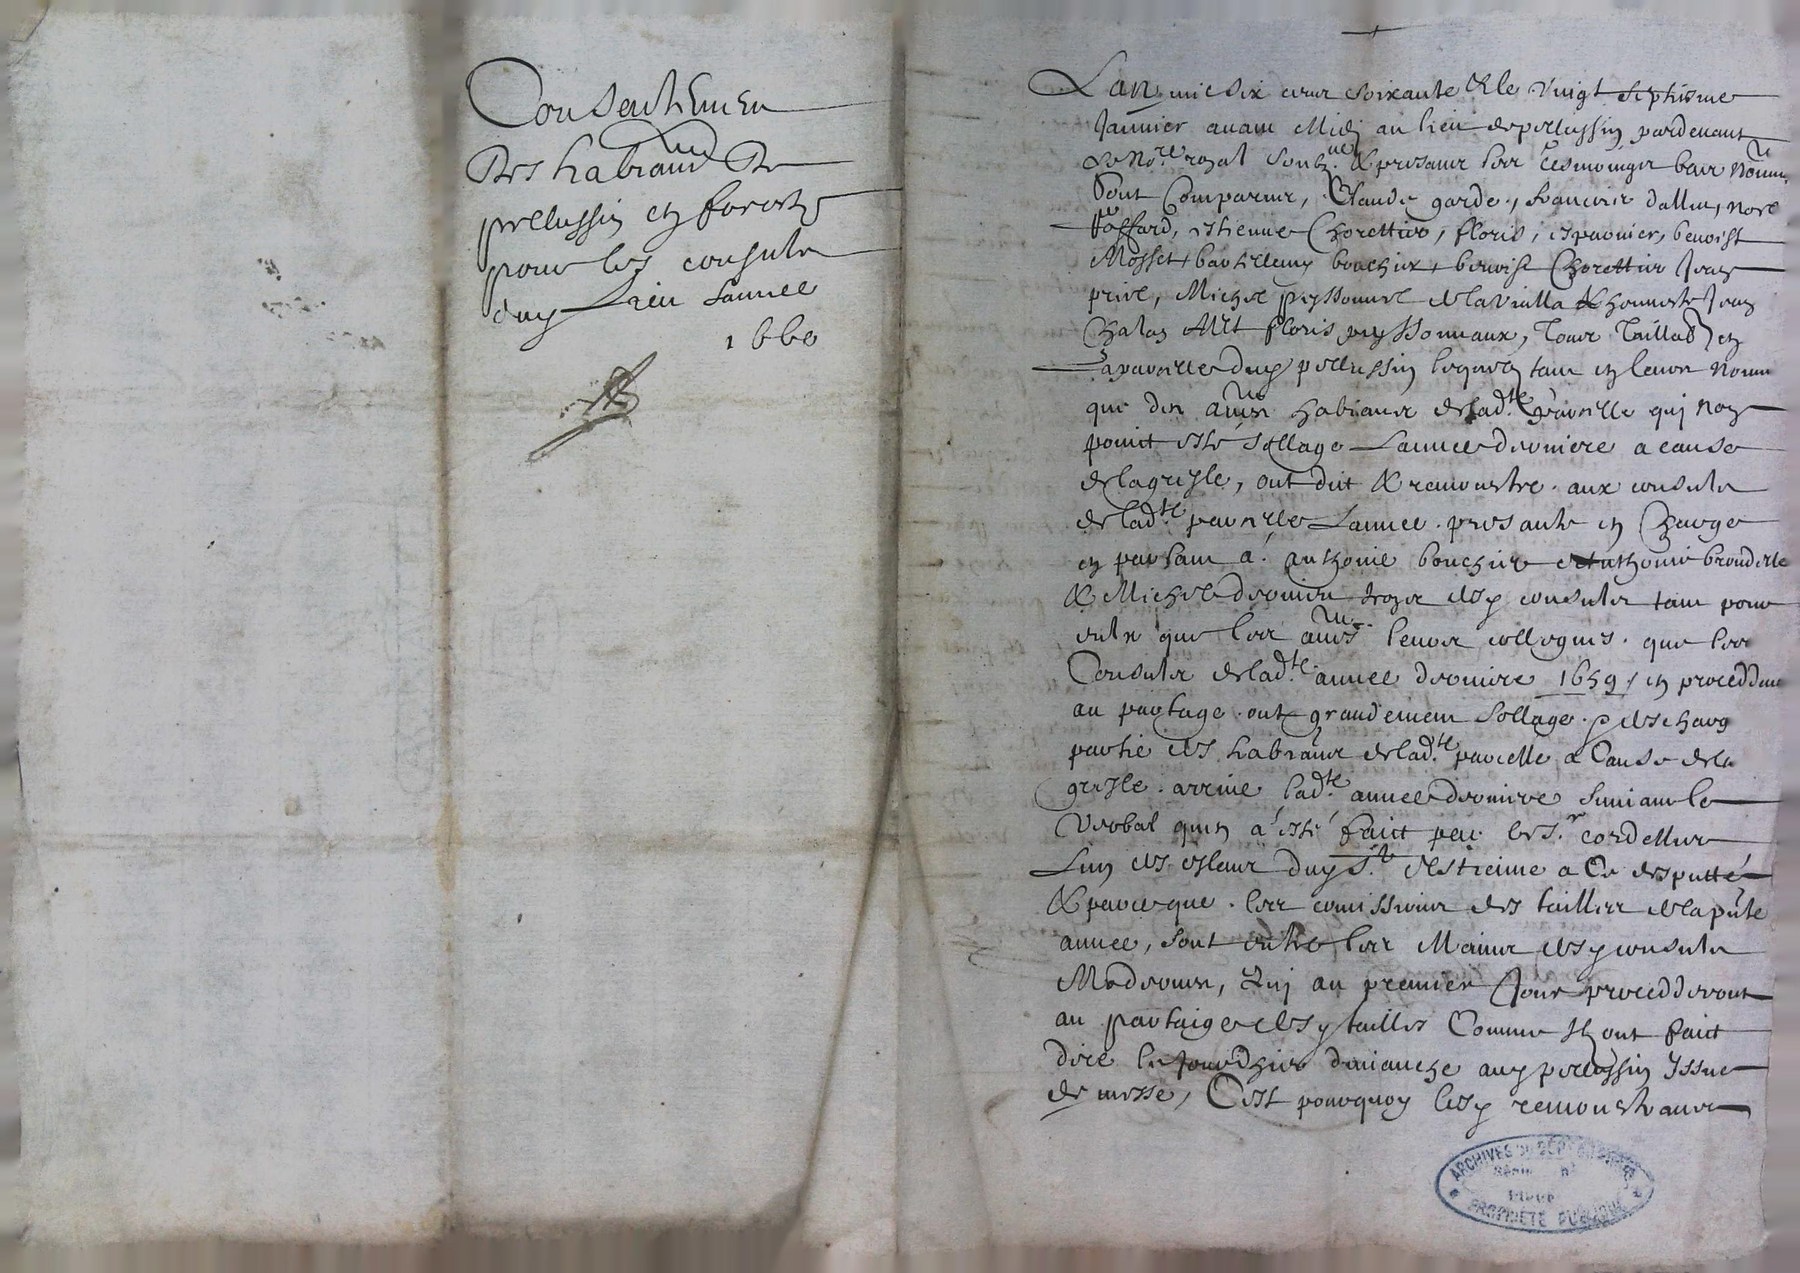 Consentemen
des habitans de
pellussin en forestz
pour les consulz
dup. Lieu Lannee
1660
Lan mil six cens soixante & le vingt septiesme
Janvier avant Midj au lieu de pellussin, pardevant
le no.re royal soubz.né & presans les tesmoingz bas nommes
sont Comparus, Claude garde, francois dallin, noel
toffard, estienne Chorettier, floris, espaonier, benoist
Mosset, barthellemy bouchier, benoist Chorettier Jean
privé, Michel peyssonnel de la vialla & honneste Jean
Chalas Mtt floris peyssonneaux, tous taillab. en
la parcelle dup. pellussin lesquelz tant en leurs noms
que des autres habitans de lad.te parcelle qui nont
point esté sollagé Lannee derniere a cause
de la gresle, ont dit & remonstré aux consulz
de lad.te parcelle Lannee presante en Charge
en parlant a anthonie bouchier et anthonie brondelle
& Michel dervieu troys desp. consulz tant pour
eulx que les autres leurs collegues que les
Consulz de lad.te annee derniere 1659 en proceddant
au partage ont grandement sollagé & descharg
partie des habitans de lad.te parcelle a Cause de la
gresle arrivé lad.te annee derniere suivant le
Verbal quen a esté faict par le S.r cordellier
Lun des esleuz dup. S.t Estienne a Ce desputté
& parce que les comissions des tailles de la pnte
annee, sont entre les Mains desp. consulz
Modernes, quj au premier Jour procedderont
au partaige desp. tailles Comme Ilz ont faict
dire le jourdhier dimanche aup. pellussin yssue
de messe, C'est pourquoy lesp. remonstrans
ARCHIVES DU DEP
Série
PROPRIETE PUBLIQUE